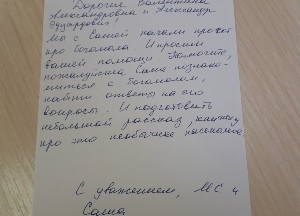 Дорогие Валентина
Александровна и Александр
Эдуардович!
Мы с Сашей начали проект
про Богомола. И просим
вашей помощи. Помогите,
пожалуйста Саше познако-
миться с Богомолом,
найти ответы на его
вопросы. И подготовить
небольшой рассказ, книжку
про это необычное насекомое.
С уважением, МС и
Саша